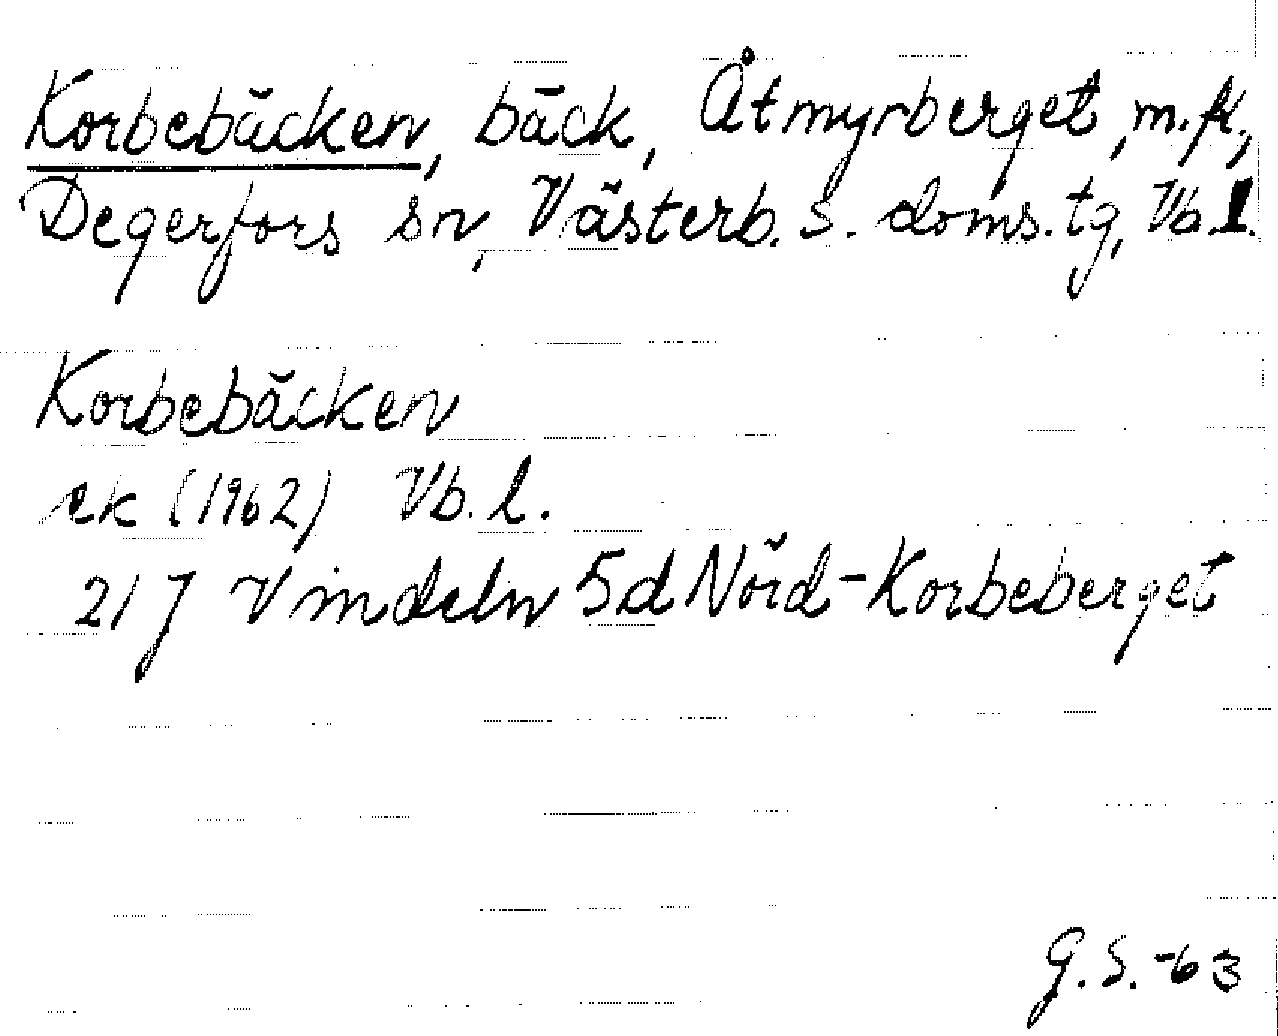 Korbebäcken, bäck, Åtmyrberget, m.fl.,
Degerfors sn, Västerb. s. doms. tg, Vb.l.
Korbebäcken
ek (1962) Vb. l.
21 J Vindeln 5d Nörd-Korbeberget
G.S.-63